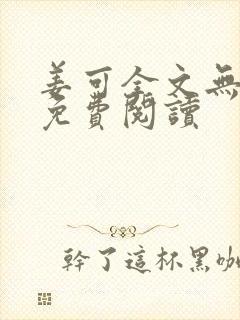 姜可全文無
免費閱讀
幹了這杯黑咖